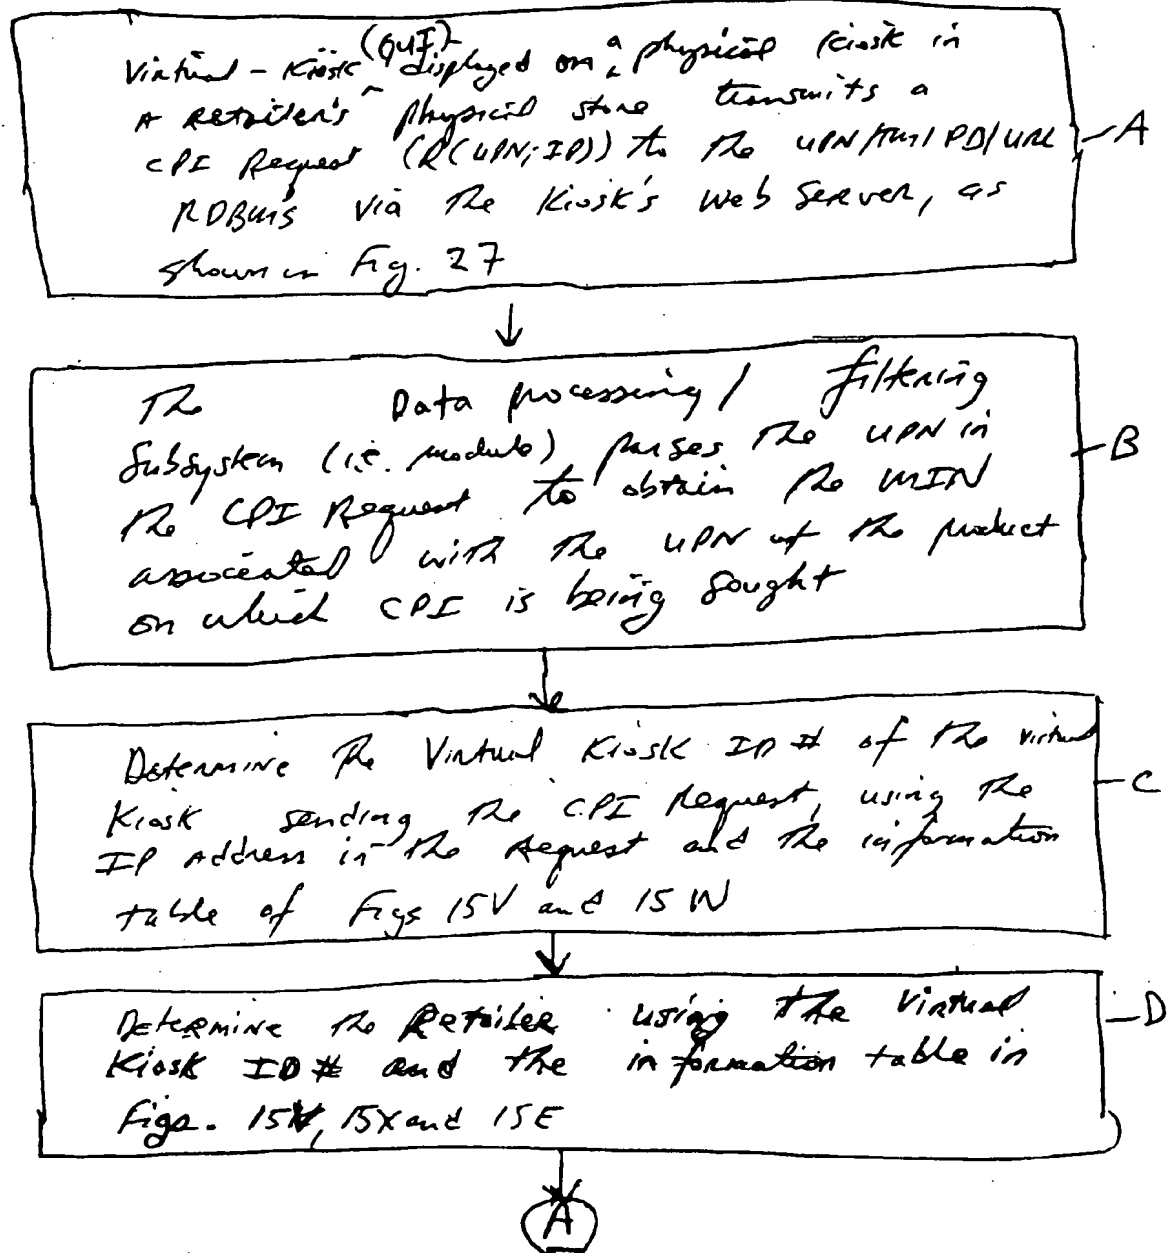 (GUI)
Virtual - Kiosk ^ displayed on ^a physical kiosk in
A Retailer's physical store transmits a
CPI Request (R(UPN; IP)) to the UPN/TM/PD/URL
RDBMS via the Kiosk's Web Server, as
shown in Fig. 27
A
The Data processing / filtering
Subsystem (i.e. module) parses the UPN in
the CPI Request to obtain the MIN
associated with the UPN of the product
on which CPI is being sought
B
Determine the Virtual Kiosk ID # of the virtual
Kiosk sending the CPI Request, using the
IP Address in the Request and the information
table of Figs 15V and 15W
C
Determine the Retailer using the Virtual
Kiosk ID # and the information table in
Figs. 15X and 15E
D
A